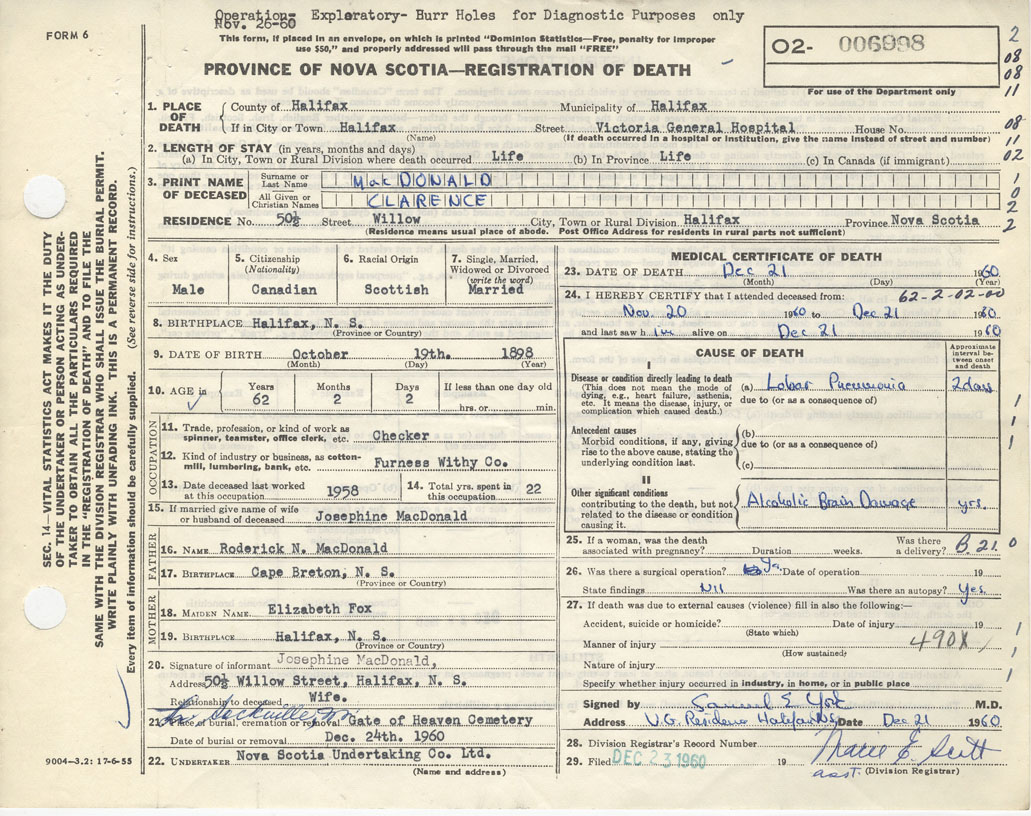 Operation- Exploratory- Burr Holes for Diagnostic Purposes only
Nov. 26-60
FORM 6
This form, if placed in an envelope, on which is printed "Dominion Statistics—Free, penalty for improper
use $50," and properly addressed will pass through the mail "FREE"
PROVINCE OF NOVA SCOTIA—REGISTRATION OF DEATH
02- 006998
For use of the Department only
2
08
08
11
08
11
02
1
0
2
2
SEC. 14—VITAL STATISTICS ACT MAKES IT THE DUTY
OF THE UNDERTAKER OR PERSON ACTING AS UNDER-
TAKER TO OBTAIN ALL THE PARTICULARS REQUIRED
IN THE "REGISTRATION OF DEATH" AND TO FILE THE
SAME WITH THE DIVISION REGISTRAR WHO SHALL ISSUE THE BURIAL PERMIT.
WRITE PLAINLY WITH UNFADING INK. THIS IS A PERMANENT RECORD.
Every item of information should be carefully supplied. (See reverse side for instructions.)
1. PLACE OF DEATH
County of Halifax Municipality of Halifax
If in City or Town Halifax Street Victoria General Hospital House No.
(Name) (If death occurred in a hospital or institution, give the name instead of street and number)
2. LENGTH OF STAY (in years, months and days)
(a) In City, Town or Rural Division where death occurred Life (b) In Province Life (c) In Canada (if immigrant)
3. PRINT NAME OF DECEASED
Surname or Last Name MacDONALD
All Given or Christian Names CLARENCE
RESIDENCE No. 50½ Street Willow City, Town or Rural Division Halifax Province Nova Scotia
(Residence means usual place of abode. Post Office Address for residents in rural parts not sufficient)
4. Sex
Male
5. Citizenship
(Nationality)
Canadian
6. Racial Origin
Scottish
7. Single, Married,
Widowed or Divorced
(write the word)
Married
8. BIRTHPLACE Halifax, N. S.
(Province or Country)
9. DATE OF BIRTH October 19th. 1898
(Month) (Day) (Year)
10. AGE in
Years
62
Months
2
Days
2
If less than one day old
hrs. or min.
OCCUPATION
11. Trade, profession or kind of work as
spinner, teamster, office clerk, etc. Checker
12. Kind of industry or business, as cotton-
mill, lumbering, bank, etc. Furness Withy Co.
13. Date deceased last worked
at this occupation 1958
14. Total yrs. spent in
this occupation 22
15. If married give name of wife
or husband of deceased Josephine MacDonald
FATHER
16. NAME Roderick N. MacDonald
17. BIRTHPLACE Cape Breton, N. S.
(Province or Country)
MOTHER
18. MAIDEN NAME Elizabeth Fox
19. BIRTHPLACE Halifax, N. S.
(Province or Country)
20. Signature of informant Josephine MacDonald,
Address 50½ Willow Street, Halifax, N. S.
Relationship to deceased Wife.
Sackville,
21. Place of burial, cremation or removal Gate of Heaven Cemetery
Date of burial or removal Dec. 24th. 1960
22. UNDERTAKER Nova Scotia Undertaking Co. Ltd.
(Name and address)
9004—3.2: 17-6-55
MEDICAL CERTIFICATE OF DEATH
23. DATE OF DEATH Dec 21 1960
(Month) (Day) (Year)
24. I HEREBY CERTIFY that I attended deceased from: 62-2-02-00
Nov. 20 1960 to Dec 21 1960
and last saw him alive on Dec 21 1960
CAUSE OF DEATH
Approximate
interval be-
tween onset
and death
I
Disease or condition directly leading to death
(This does not mean the mode of
dying, e.g., heart failure, asthenia,
etc. It means the disease, injury, or
complication which caused death.)
(a) Lobar Pneumonia 2 days
due to (or as a consequence of)
1
1
1
Antecedent causes
Morbid conditions, if any, giving
rise to the above cause, stating the
underlying condition last.
(b)
due to (or as a consequence of)
(c)
II
Other significant conditions
contributing to the death, but not
related to the disease or condition
causing it.
Alcoholic Brain Damage yrs.
25. If a woman, was the death
associated with pregnancy? Duration weeks.
Was there
a delivery? B.21. 0
26. Was there a surgical operation? Date of operation 19
State findings Nil Was there an autopsy? Yes.
27. If death was due to external causes (violence) fill in also the following:—
Accident, suicide or homicide? Date of injury 19
(State which)
Manner of injury 490X
(How sustained)
Nature of injury
Specify whether injury occurred in industry, in home, or in public place
1
1
1
Signed by Samuel E York M.D.
Address V.G. Residence Halifax NS Date Dec 21 1960
28. Division Registrar's Record Number
29. Filed DEC 23 1960 19 Marie E. Scott
asst. (Division Registrar)